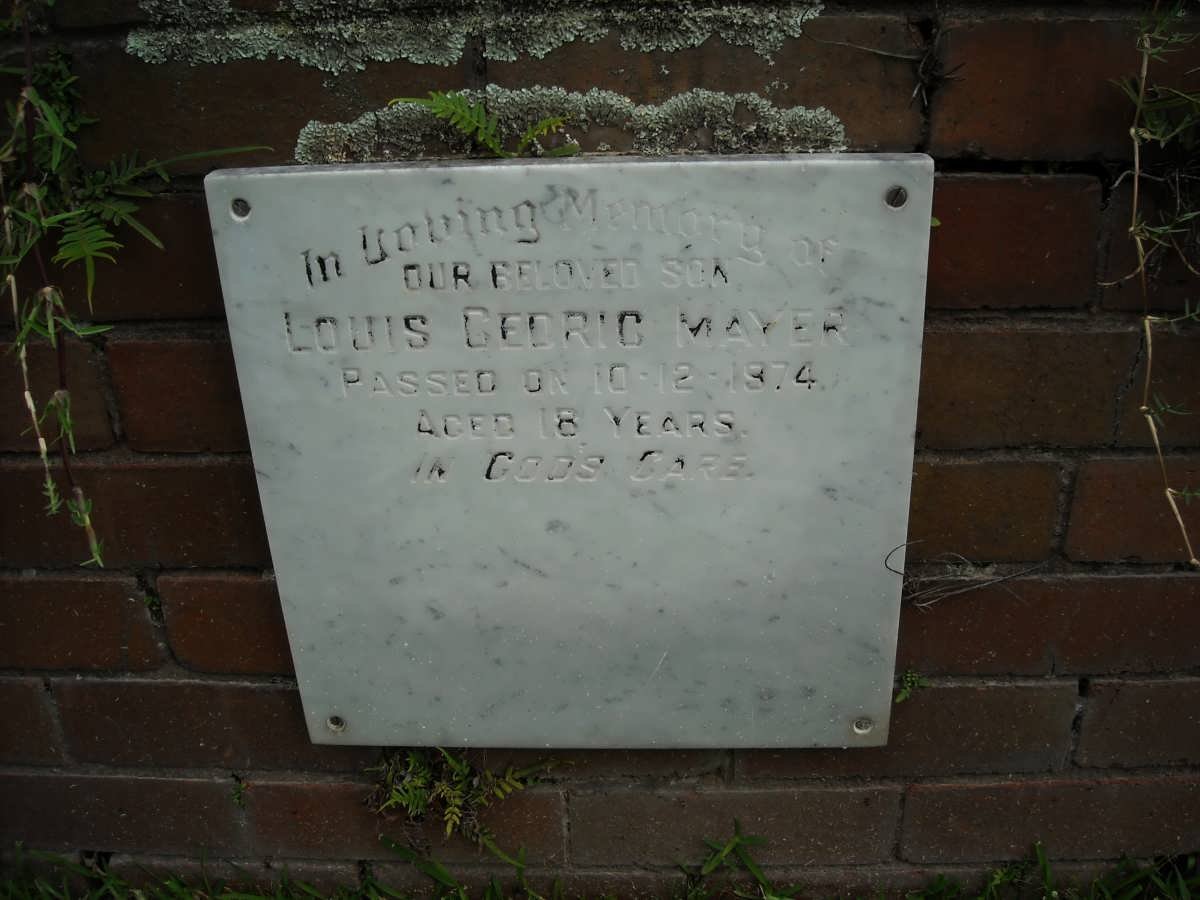 In Loving Memory of
OUR BELOVED SON
LOUIS CEDRIC MAYER
PASSED ON 10-12-1974
AGED 18 YEARS.
IN GODS CARE.